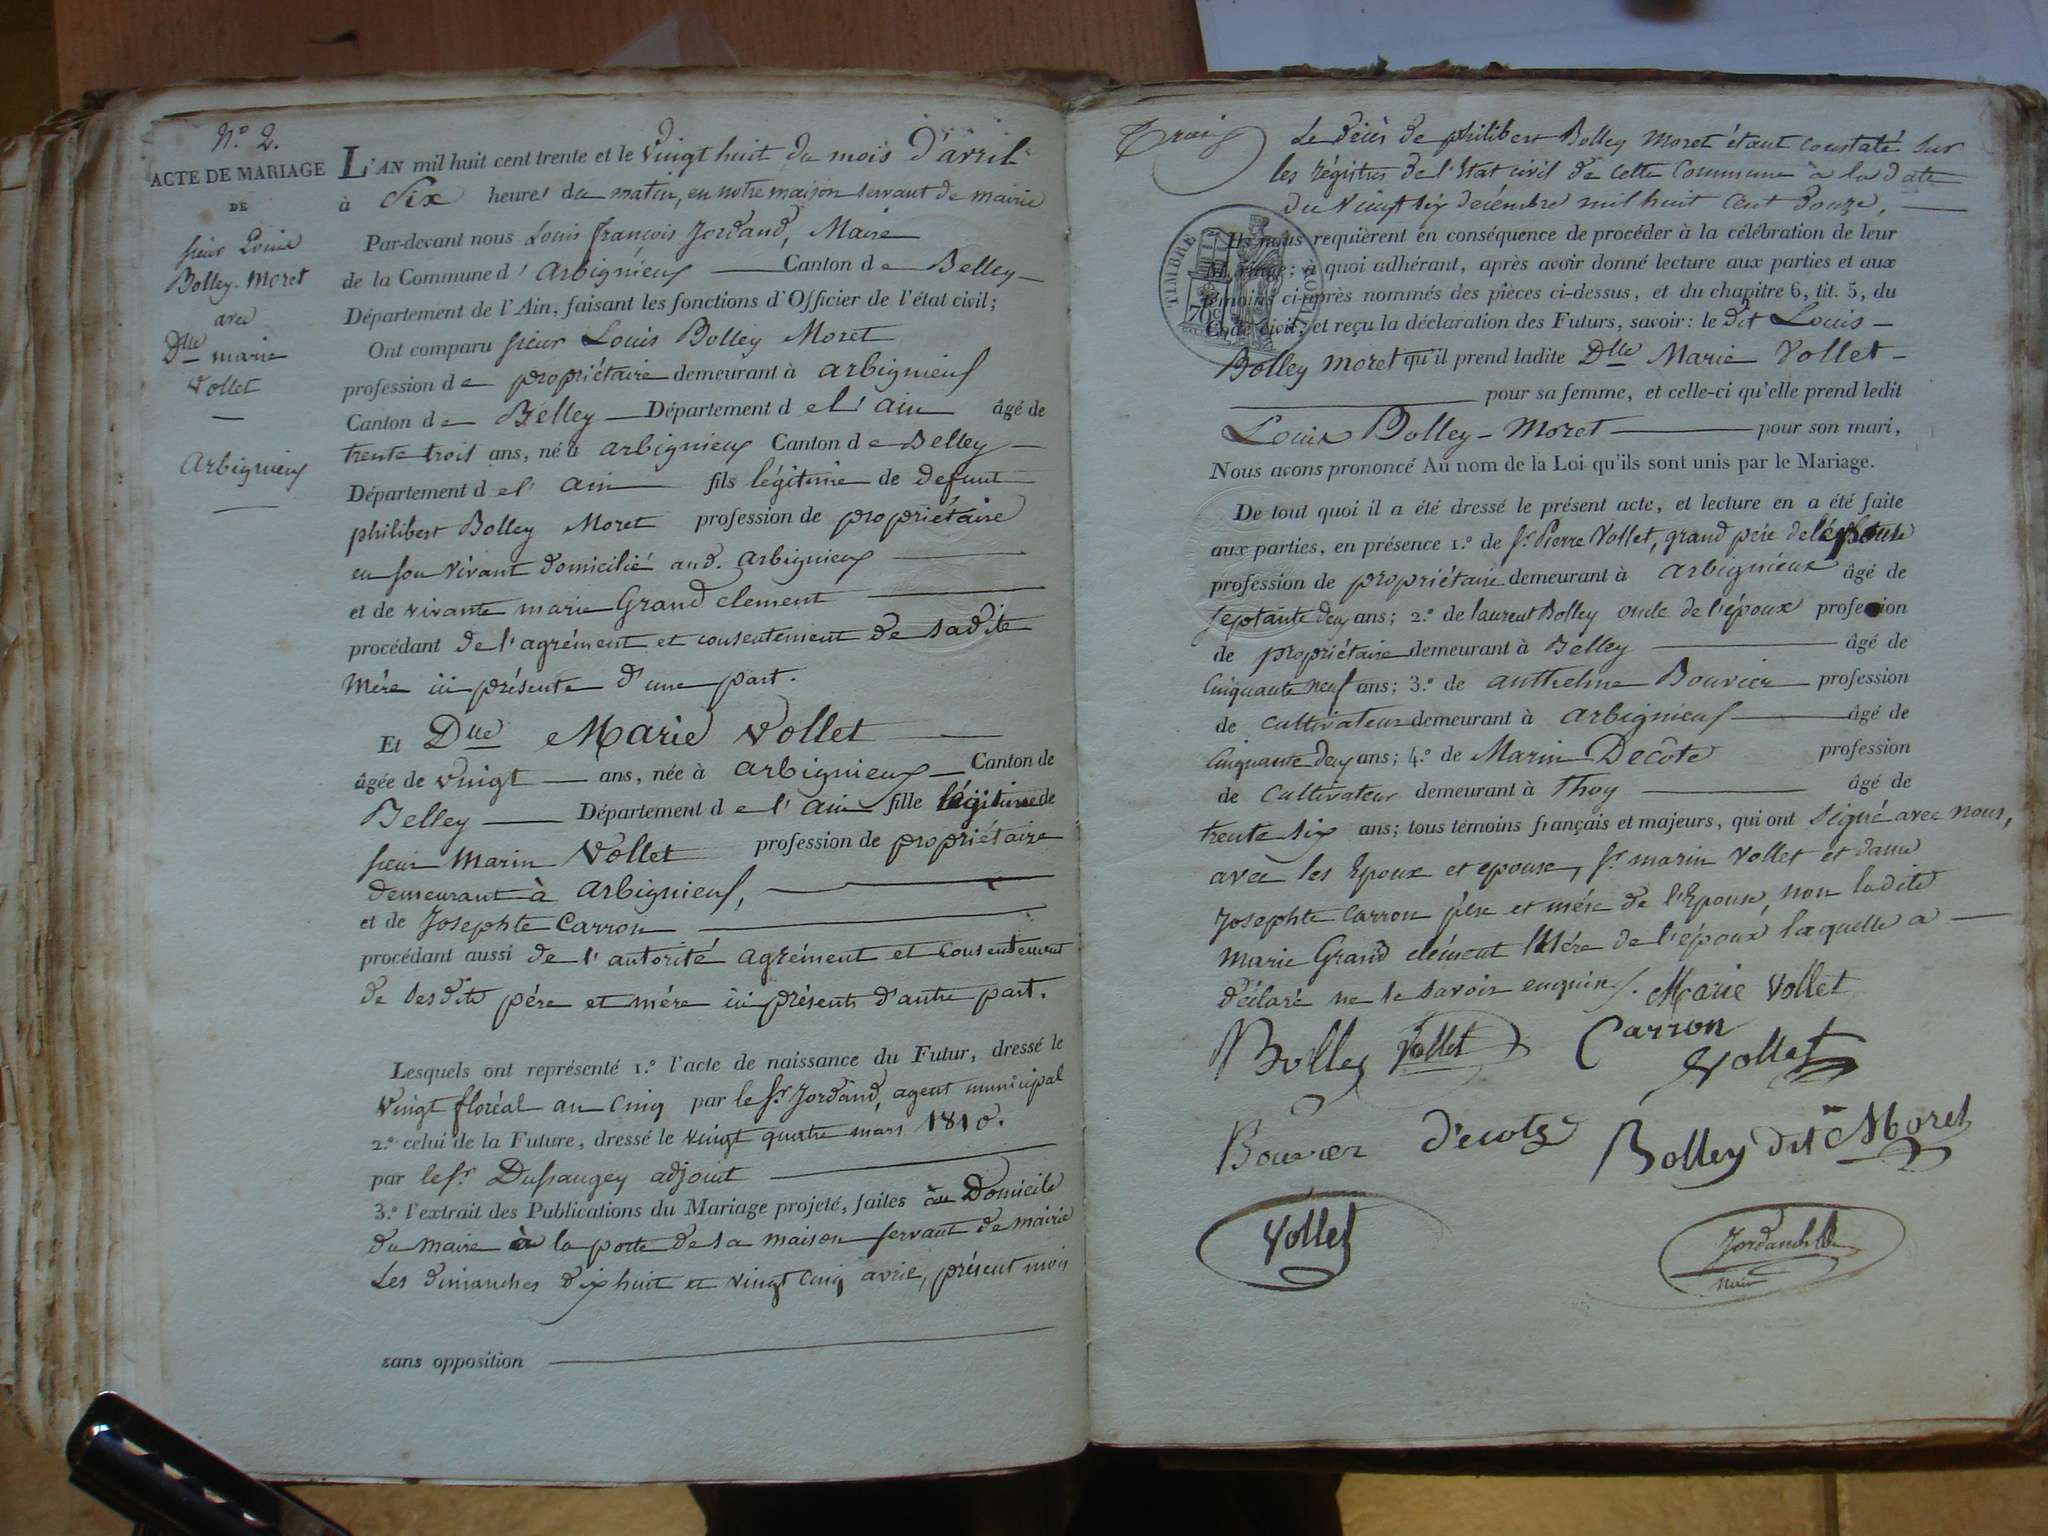 N.° 2.
ACTE DE MARIAGE
DE
sieur Louis
Bolley-Moret
avec
Dlle marie
Vollet
Arbignieux
L'AN mil huit cent trente et le vingt huit du mois d'avril
à Six heures du matin, en notre maison servant de mairie
Par-devant nous Louis françois Jordand, Maire
de la Commune d'Arbignieux Canton de Belley
Département de l'Ain, faisant les fonctions d'Officier de l'état civil;
Ont comparu sieur Louis Bolley Moret
profession de propriétaire demeurant à Arbignieux
Canton de Belley Département de l'ain âgé de
trente trois ans, né à Arbignieux Canton de Belley
Département de l'ain fils légitime de defunt
philibert Bolley Moret profession de propriétaire
en son vivant domicilié aud. Arbignieux
et de vivante marie Grand clement
procédant de l'agrément et consentement de sadite
Mére ici présente d'une part.
Et Dlle Marie Vollet
âgée de vingt ans, née à Arbignieux Canton de
Belley Département de l'ain fille légitime de
sieur Marin Vollet profession de propriétaire
demeurant à Arbignieux,
et de Josephte Carron
procédant aussi de l'autorité agrément et consentement
de sesdits pére et mére ici présents d'autre part.
Lesquels ont représenté 1.° l'acte de naissance du Futur, dressé le
vingt floréal an cinq par le sr. Jordand, agent municipal
2.° celui de la Future, dressé le vingt quatre mars 1810.
par le sr. Dussaugey adjoint
3.° l'extrait des Publications du Mariage projeté, faites au Domicile
du maire à la porte de sa maison servant de mairie
Les dimanches dix huit et vingt cinq avril, présent mois
sans opposition
Trois
Le décès de philibert Bolley Moret étant constaté sur
les régistres de l'Etat civil de cette Commune à la date
du vingt six décembre mil huit cent douze,
TIMBRE ROYAL
70c
Ils nous requièrent en conséquence de procéder à la célébration de leur
Mariage; à quoi adhérant, après avoir donné lecture aux parties et aux
témoins ci-après nommés des pièces ci-dessus, et du chapitre 6, tit. 5, du
Code civil; et reçu la déclaration des Futurs, savoir: le dit Louis
Bolley Moret qu'il prend ladite Dlle Marie Vollet
pour sa femme, et celle-ci qu'elle prend ledit
Louis Bolley-Moret pour son mari,
Nous avons prononcé Au nom de la Loi qu'ils sont unis par le Mariage.
De tout quoi il a été dressé le présent acte, et lecture en a été faite
aux parties, en présence 1.° de sr. Pierre Vollet, grand pére de l'épouse
profession de propriétaire demeurant à Arbignieux âgé de
septante deux ans; 2.° de laurent Bolley oncle de l'époux profession
de propriétaire demeurant à Belley âgé de
Cinquante neuf ans; 3.° de anthelme Bouvier profession
de cultivateur demeurant à Arbignieux âgé de
Cinquante deux ans; 4.° de Marin Decôte profession
de Cultivateur demeurant à Thoy âgé de
trente six ans; tous témoins français et majeurs, qui ont signé avec nous,
avec les Epoux et epouse, sr. marin Vollet et dame
Josephte Carron pére et mére de l'Epouse, non ladite
Marie Grand clément Mére de l'époux laquelle a
déclaré ne le savoir enquise. Marie Vollet
Bolley Vollet Carron
Vollet
Bouvier Decote Bolley dit Moret
Vollet
Jordand
Maire